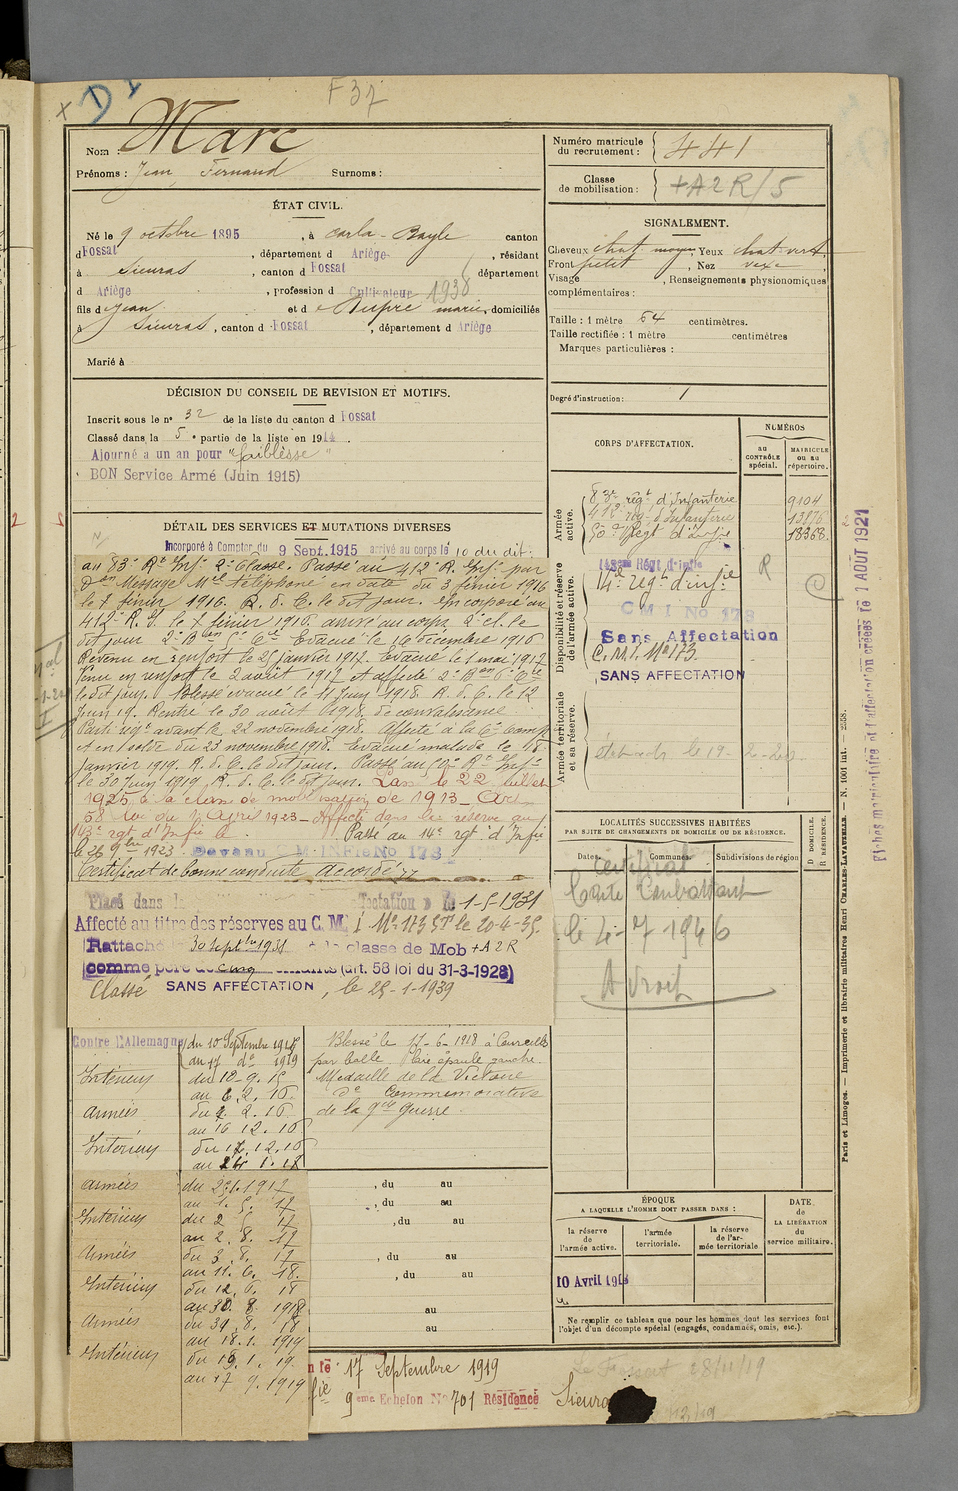 F 37
Nom : Marc
Prénoms : Jean Fernand Surnoms :
ÉTAT CIVIL.
Né le 9 octobre 1895, à Carla-Bayle canton
d Fossat, département d Ariège, résidant
à Sieuras, canton d Fossat département
d Ariège, profession d Cultivateur 1938
fils d Jean et d Dupré marie, domiciliés
à Sieuras, canton d Fossat, département d Ariège
Marié à
DÉCISION DU CONSEIL DE REVISION ET MOTIFS.
Inscrit sous le n° 32 de la liste du canton d Fossat
Classé dans la 5e partie de la liste en 1914.
Ajourné a un an pour "faiblesse"
BON Service Armé (Juin 1915)
DÉTAIL DES SERVICES ET MUTATIONS DIVERSES
Incorporé à Compter du 9 Sept. 1915 arrivé au corps le 10 du dit.
au 83e Rt Infie 2e Classe. Passé au 412e R. Infie par
Don Message Mel téléphoné en date du 3 février 1916
le 7 février 1916. R. d. C. le dit jour. Incorporé au
412e R. I. le 7 février 1916. arrivé au corps 2e cl. le
dit jour. 2e Bon 5e Cie Evacué le 16 décembre 1916
Revenu en renfort le 25 janvier 1917. Evacué le 1 mai 1917
Venu en renfort le 2 avril 1917 et affecté 2e Bon 6e Cie
le dit jour. Blessé évacué le 11 Juin 1918. R. d. C. le 12
Juin 19. Rentré le 30 août 1918. de convalescence
Parti régt avant le 22 novembre 1918. Affecté à la 6e Comp
et en solde du 23 novembre 1918. Evacué malade le 18
Janvier 1919. R. d. C. le dit jour. Passé au 50e Rt Infie
le 30 Juin 1919. R. d. C. le dit jour. Passé le 22 Juillet
1925 à la classe de mobilisation de 1913 - Art
58 loi du 1 April 1923 - Affecté dans la réserve au
143e rgt d'Infie le Passé au 14e rgt d'Infie
le 26 9bre 1923 Devenu M INFie No 173
Certificat de bonne conduite "Accordé"
Placé dans la fectation D le 1-5-1931
Affecté au titre des réserves au C. M. I No 173 le 20-4-35.
Rattaché 30 Sept 1931 à la classe de Mob + A2R
comme père de cinq enfants (art. 58 loi du 31-3-1928)
Classé SANS AFFECTATION, le 25-1-1939
Contre l'Allemagne du 10 Septembre 1915
au 17 do 1919
Intérieur du 10.9.15
au 6.2.16
Armées du 7.2.16
au 16 12.16
Intérieur du 17.12.16
au 24 1.17
Armées du 25.1.1917
au 1.5.17
Intérieur du 2 5 17
au 2.8.17
Armées du 3.8.17
au 11.6.18.
Intérieur du 12.6.18
au 30.8.1918
Armées du 31.8.18
au 18.1.1919
Intérieur du 19.1.19.
au 17 9.1919
Blessé le 11-6-1918 à Courcelles
par balle Plaie épaule gauche.
Médaille de la Victoire
do Commémorative
de la gde Guerre.
, du au
, du au
, du au
, du au
, du au
au
au
17 Septembre 1919
9eme Echelon No 701 Résidence Sieuras
Le Fossat 28/11/19
Numéro matricule du recrutement : 441
Classe de mobilisation : + A2R/5
SIGNALEMENT.
Cheveux chat. moyen, Yeux chat. vert
Front petit, Nez vexe
Visage , Renseignements physionomiques
complémentaires :
Taille : 1 mètre 64 centimètres.
Taille rectifiée : 1 mètre centimètres
Marques particulières :
Degré d'instruction : 1
CORPS D'AFFECTATION.
NUMÉROS
au CONTRÔLE spécial.
MATRICULE ou au répertoire.
Armée active.
83e régt d'Infanterie 9104
412e régt d'Infanterie 13876
50e Régt d'Infie 18368
Disponibilité et réserve de l'armée active.
143e Régt d'infie R
14e régt d'infie
C M I No 173
Sans Affectation
C.M.I. No 173.
SANS AFFECTATION
Armée territoriale et sa réserve.
LOCALITÉS SUCCESSIVES HABITÉES
PAR SUITE DE CHANGEMENTS DE DOMICILE OU DE RÉSIDENCE.
Dates. Communes. Subdivisions de région D DOMICILE. R RÉSIDENCE.
Certificat
Carte Combattant
le 4-7 1946
A droit
ÉPOQUE
A LAQUELLE L'HOMME DOIT PASSER DANS :
la réserve de l'armée active.
l'armée territoriale.
la réserve de l'armée territoriale
DATE de LA LIBÉRATION du service militaire.
10 Avril 1918
Ne remplir ce tableau que pour les hommes dont les services font
l'objet d'un décompte spécial (engagés, condamnés, omis, etc.).
Paris et Limoges. — Imprimerie et librairie militaires Henri CHARLES-LAVAUZELLE. — N. 1001 int. — 2558.
Fiches matriculaire et d'affectation créées le 1 AOUT 1921